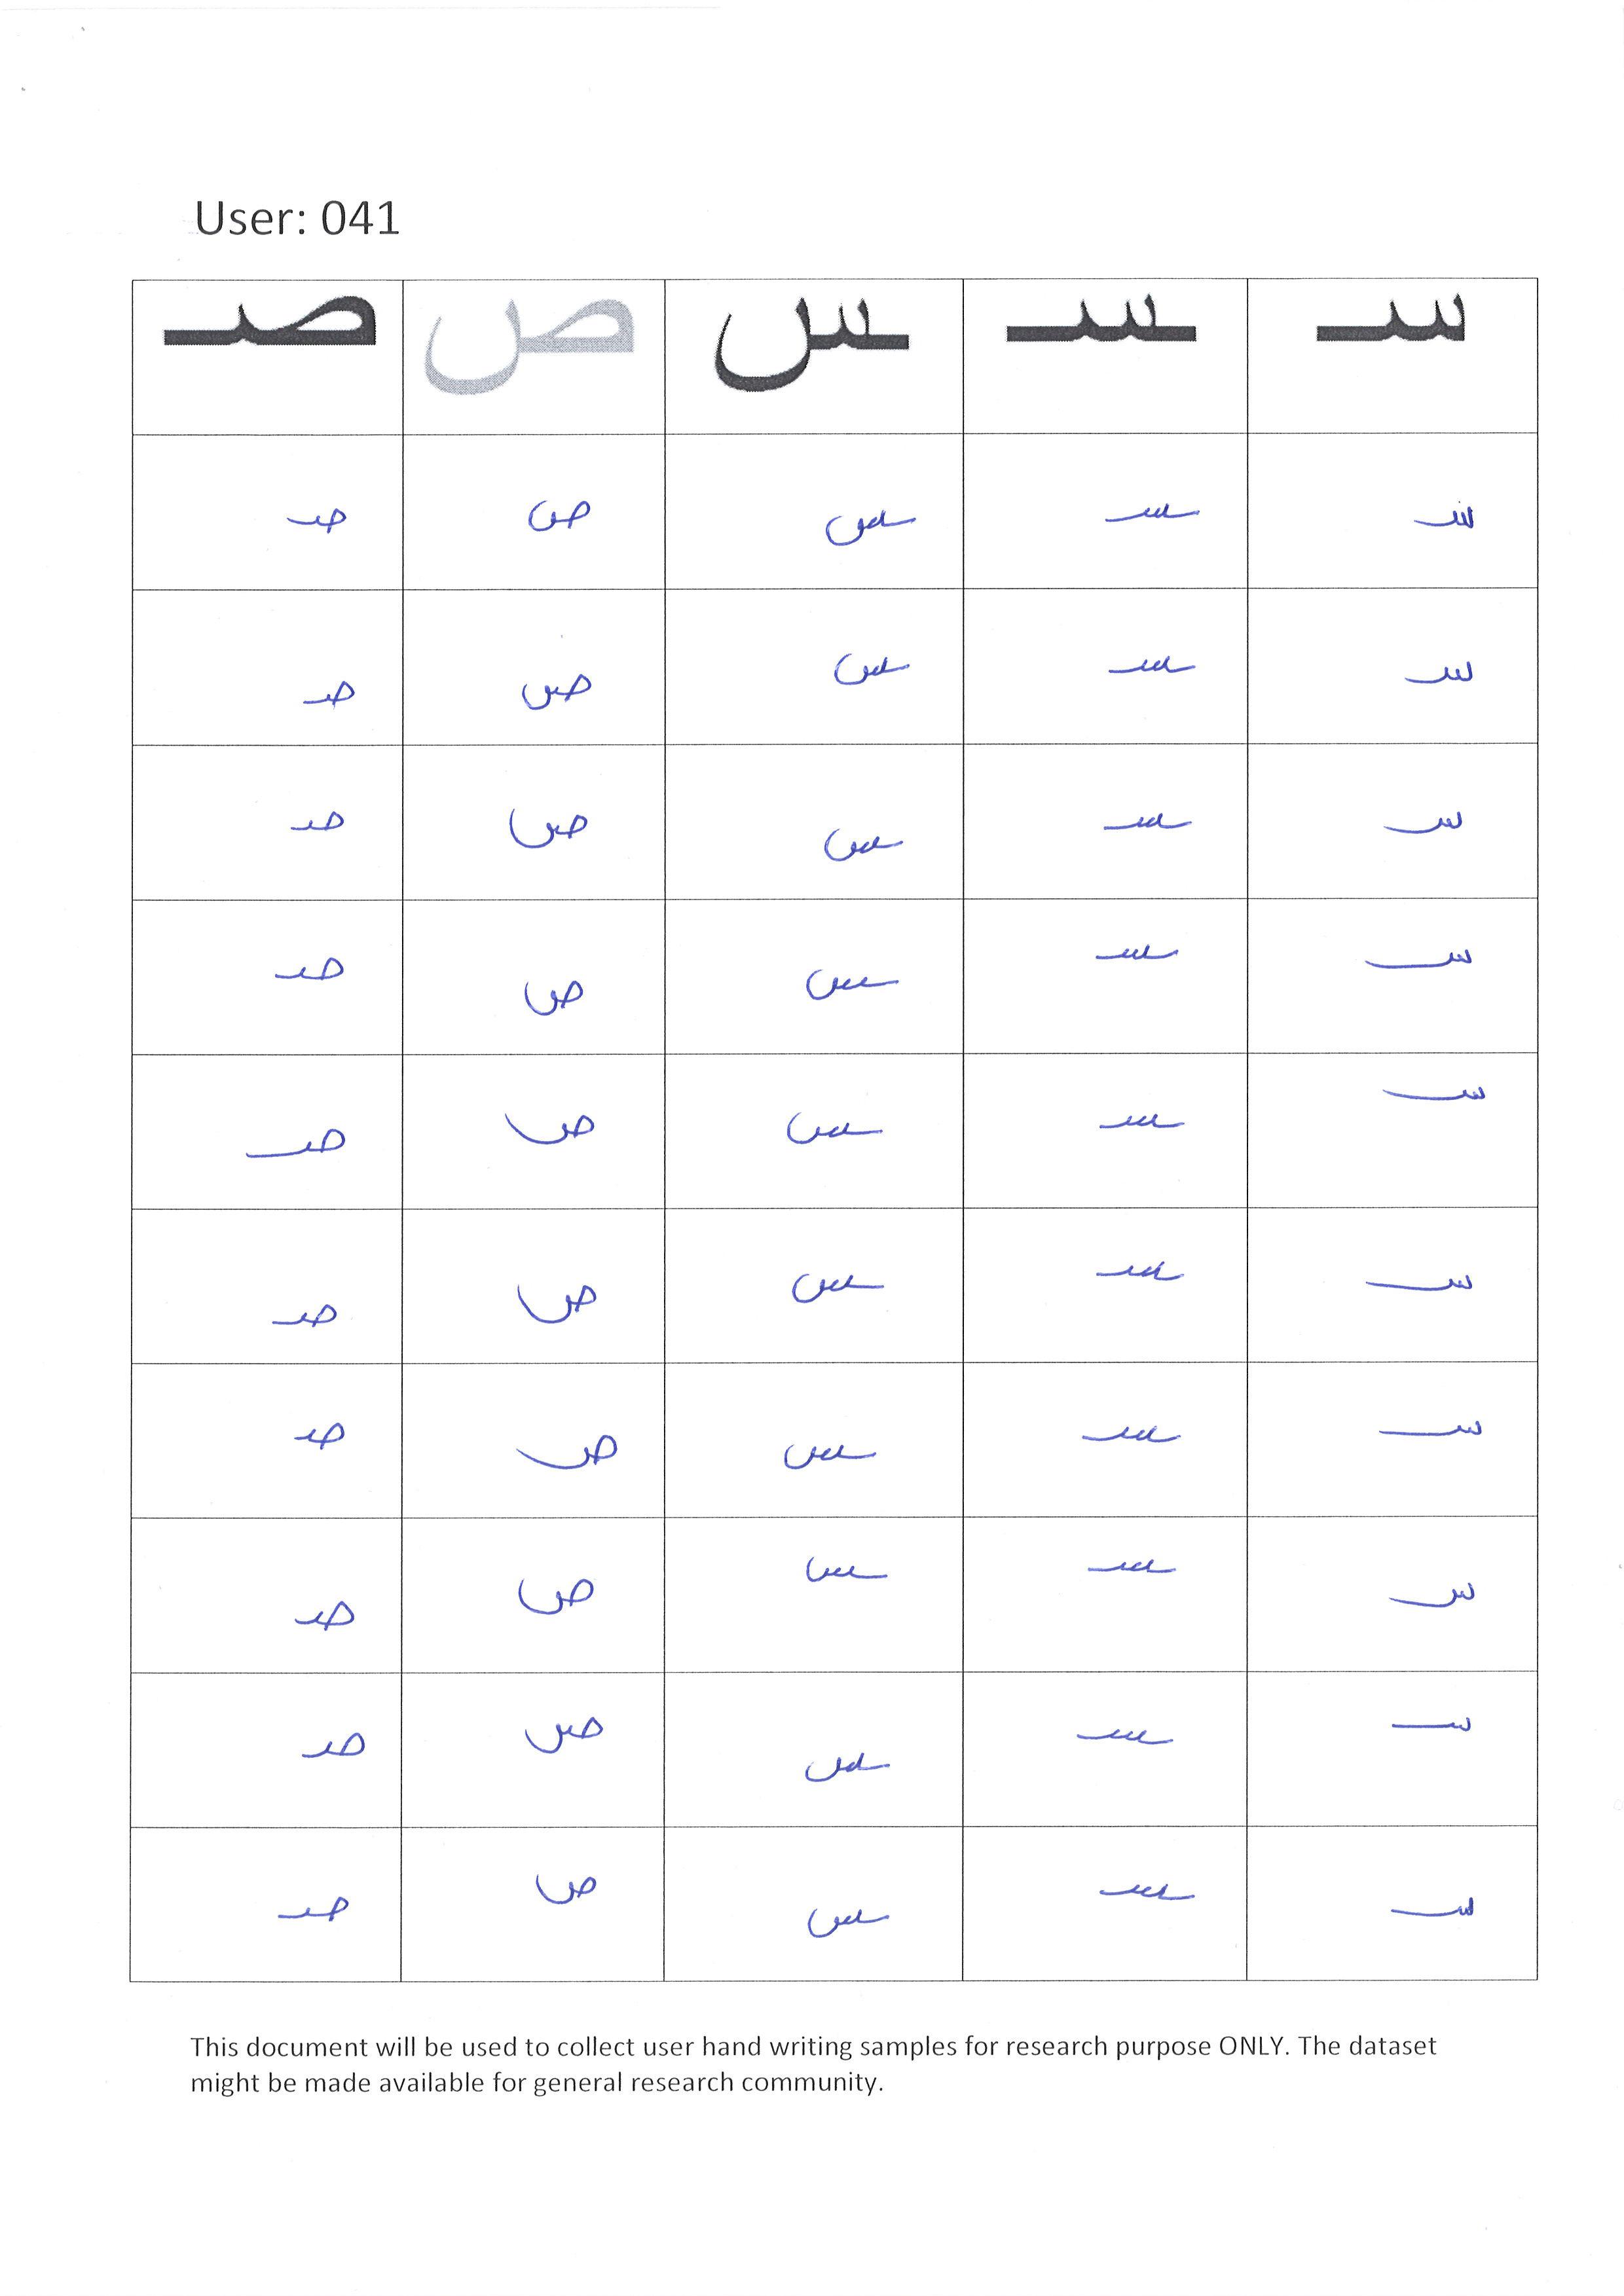 User: 041
سـ ـسـ ـس ص صـ
سـ ـسـ ـس ص صـ
سـ ـسـ ـس ص صـ
سـ ـسـ ـس ص صـ
سـ ـسـ ـس ص صـ
سـ ـسـ ـس ص صـ
سـ ـسـ ـس ص صـ
سـ ـسـ ـس ص صـ
سـ ـسـ ـس ص صـ
سـ ـسـ ـس ص صـ
سـ ـسـ ـس ص صـ
This document will be used to collect user hand writing samples for research purpose ONLY. The dataset
might be made available for general research community.